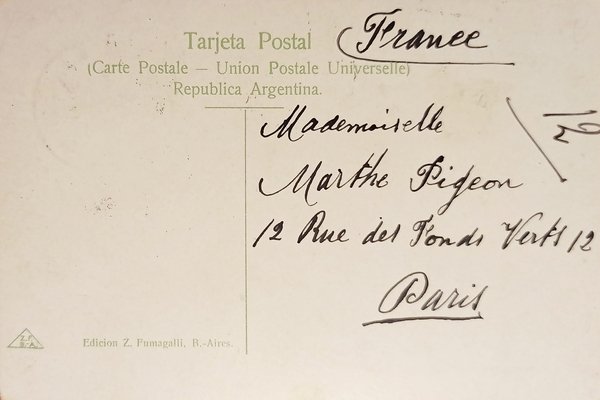 Tarjeta Postal
France
(Carte Postale – Union Postale Universelle)
Republica Argentina.
12
Mademoiselle
Marthe Pigeon
12 Rue des Fonds Verts 12
Paris
Z.F.
B-A.
Edicion Z. Fumagalli, B.-Aires.